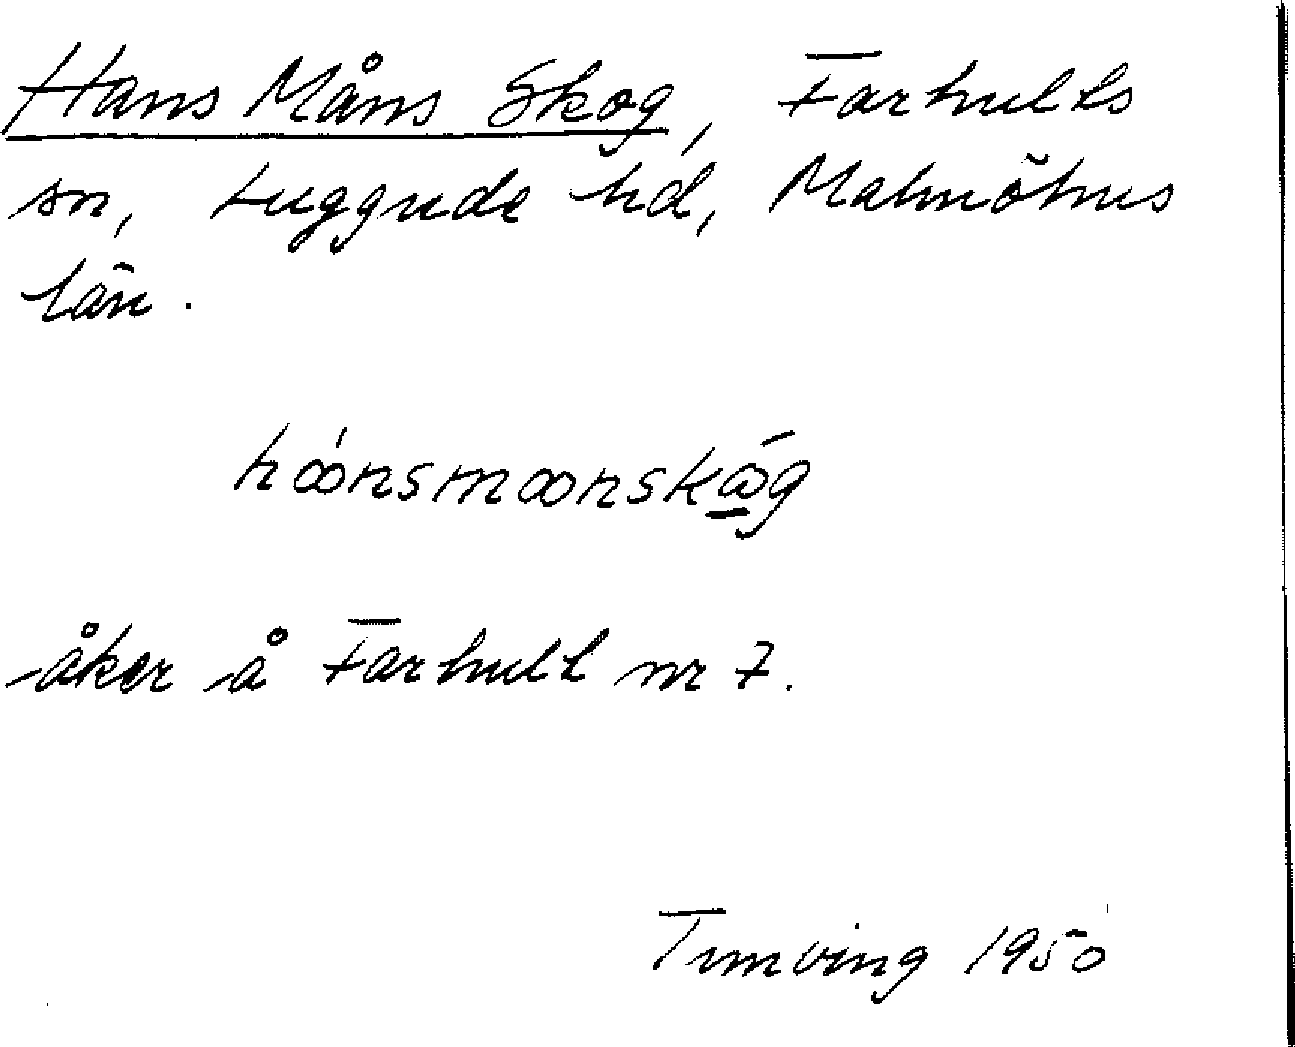 Hans Måns Skog, Farhults
sn, Luggude hd, Malmöhus
län.
hóonsmoonskǻg
åker å Farhult nr 7.
Tunving 1950